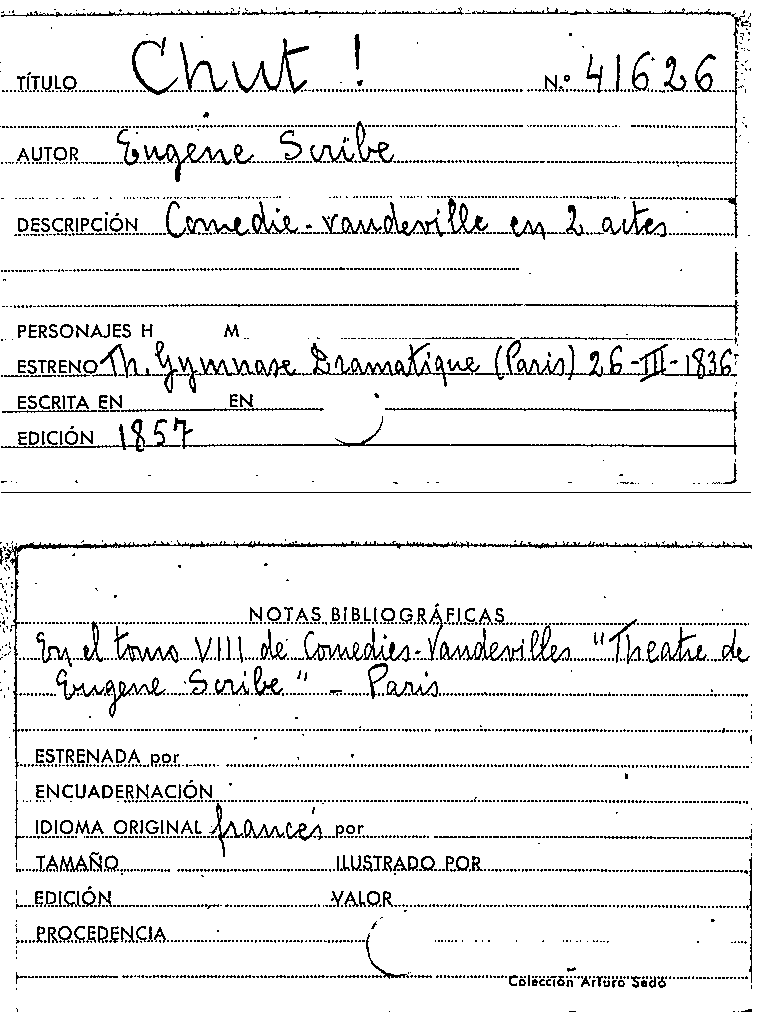 TÍTULO Chut ! N.º 41626
AUTOR Eugène Scribe
DESCRIPCIÓN Comedie-vaudeville en 2 actes
PERSONAJES H M
ESTRENO Th. Gymnase Dramatique (Paris) 26-III-1836
ESCRITA EN EN
EDICIÓN 1857
NOTAS BIBLIOGRÁFICAS
En el tomo VIII de Comedies-Vaudevilles "Theatre de
Eugene Scribe" - Paris
ESTRENADA por
ENCUADERNACIÓN
IDIOMA ORIGINAL francés por
TAMAÑO ILUSTRADO POR
EDICIÓN VALOR
PROCEDENCIA
Colección Arturo Sedó